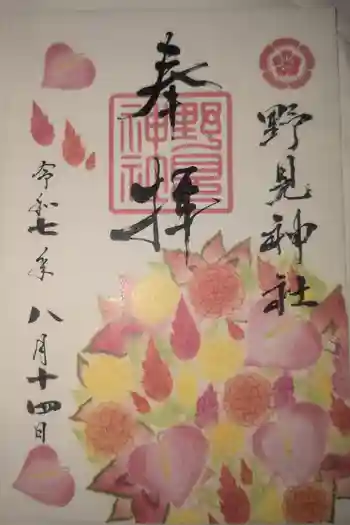 野見神社
奉拝
野見神社
令和七年八月十四日